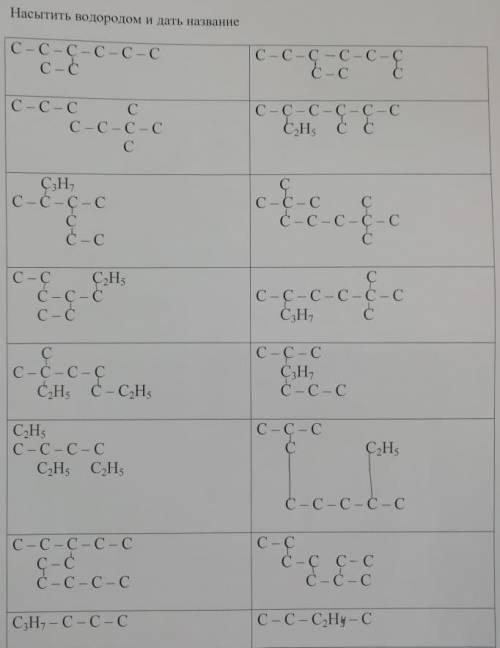 Насытить водородом и дать название
C – C – C – C – C – C
C – C
C – C – C – C – C – C
C – C C
C – C – C C
C – C – C – C
C
C – C – C – C – C – C
C₂H₅ C C
C₃H₇
C – C – C – C
C
C – C
C
C – C – C C
C – C – C – C – C
C
C – C C₂H₅
C – C – C
C – C
C
C – C – C – C – C – C – C
C₃H₇ C
C
C – C – C – C
C₂H₅ C – C₂H₅
C – C – C
C₃H₇
C – C – C
C₂H₅
C – C – C – C
C₂H₅ C₂H₅
C – C – C
C C₂H₅
C – C – C – C – C
C – C – C – C – C
C – C
C – C – C – C
C – C
C – C C – C
C – C – C
C₃H₇ – C – C – C
C – C – C₂H₅ – C